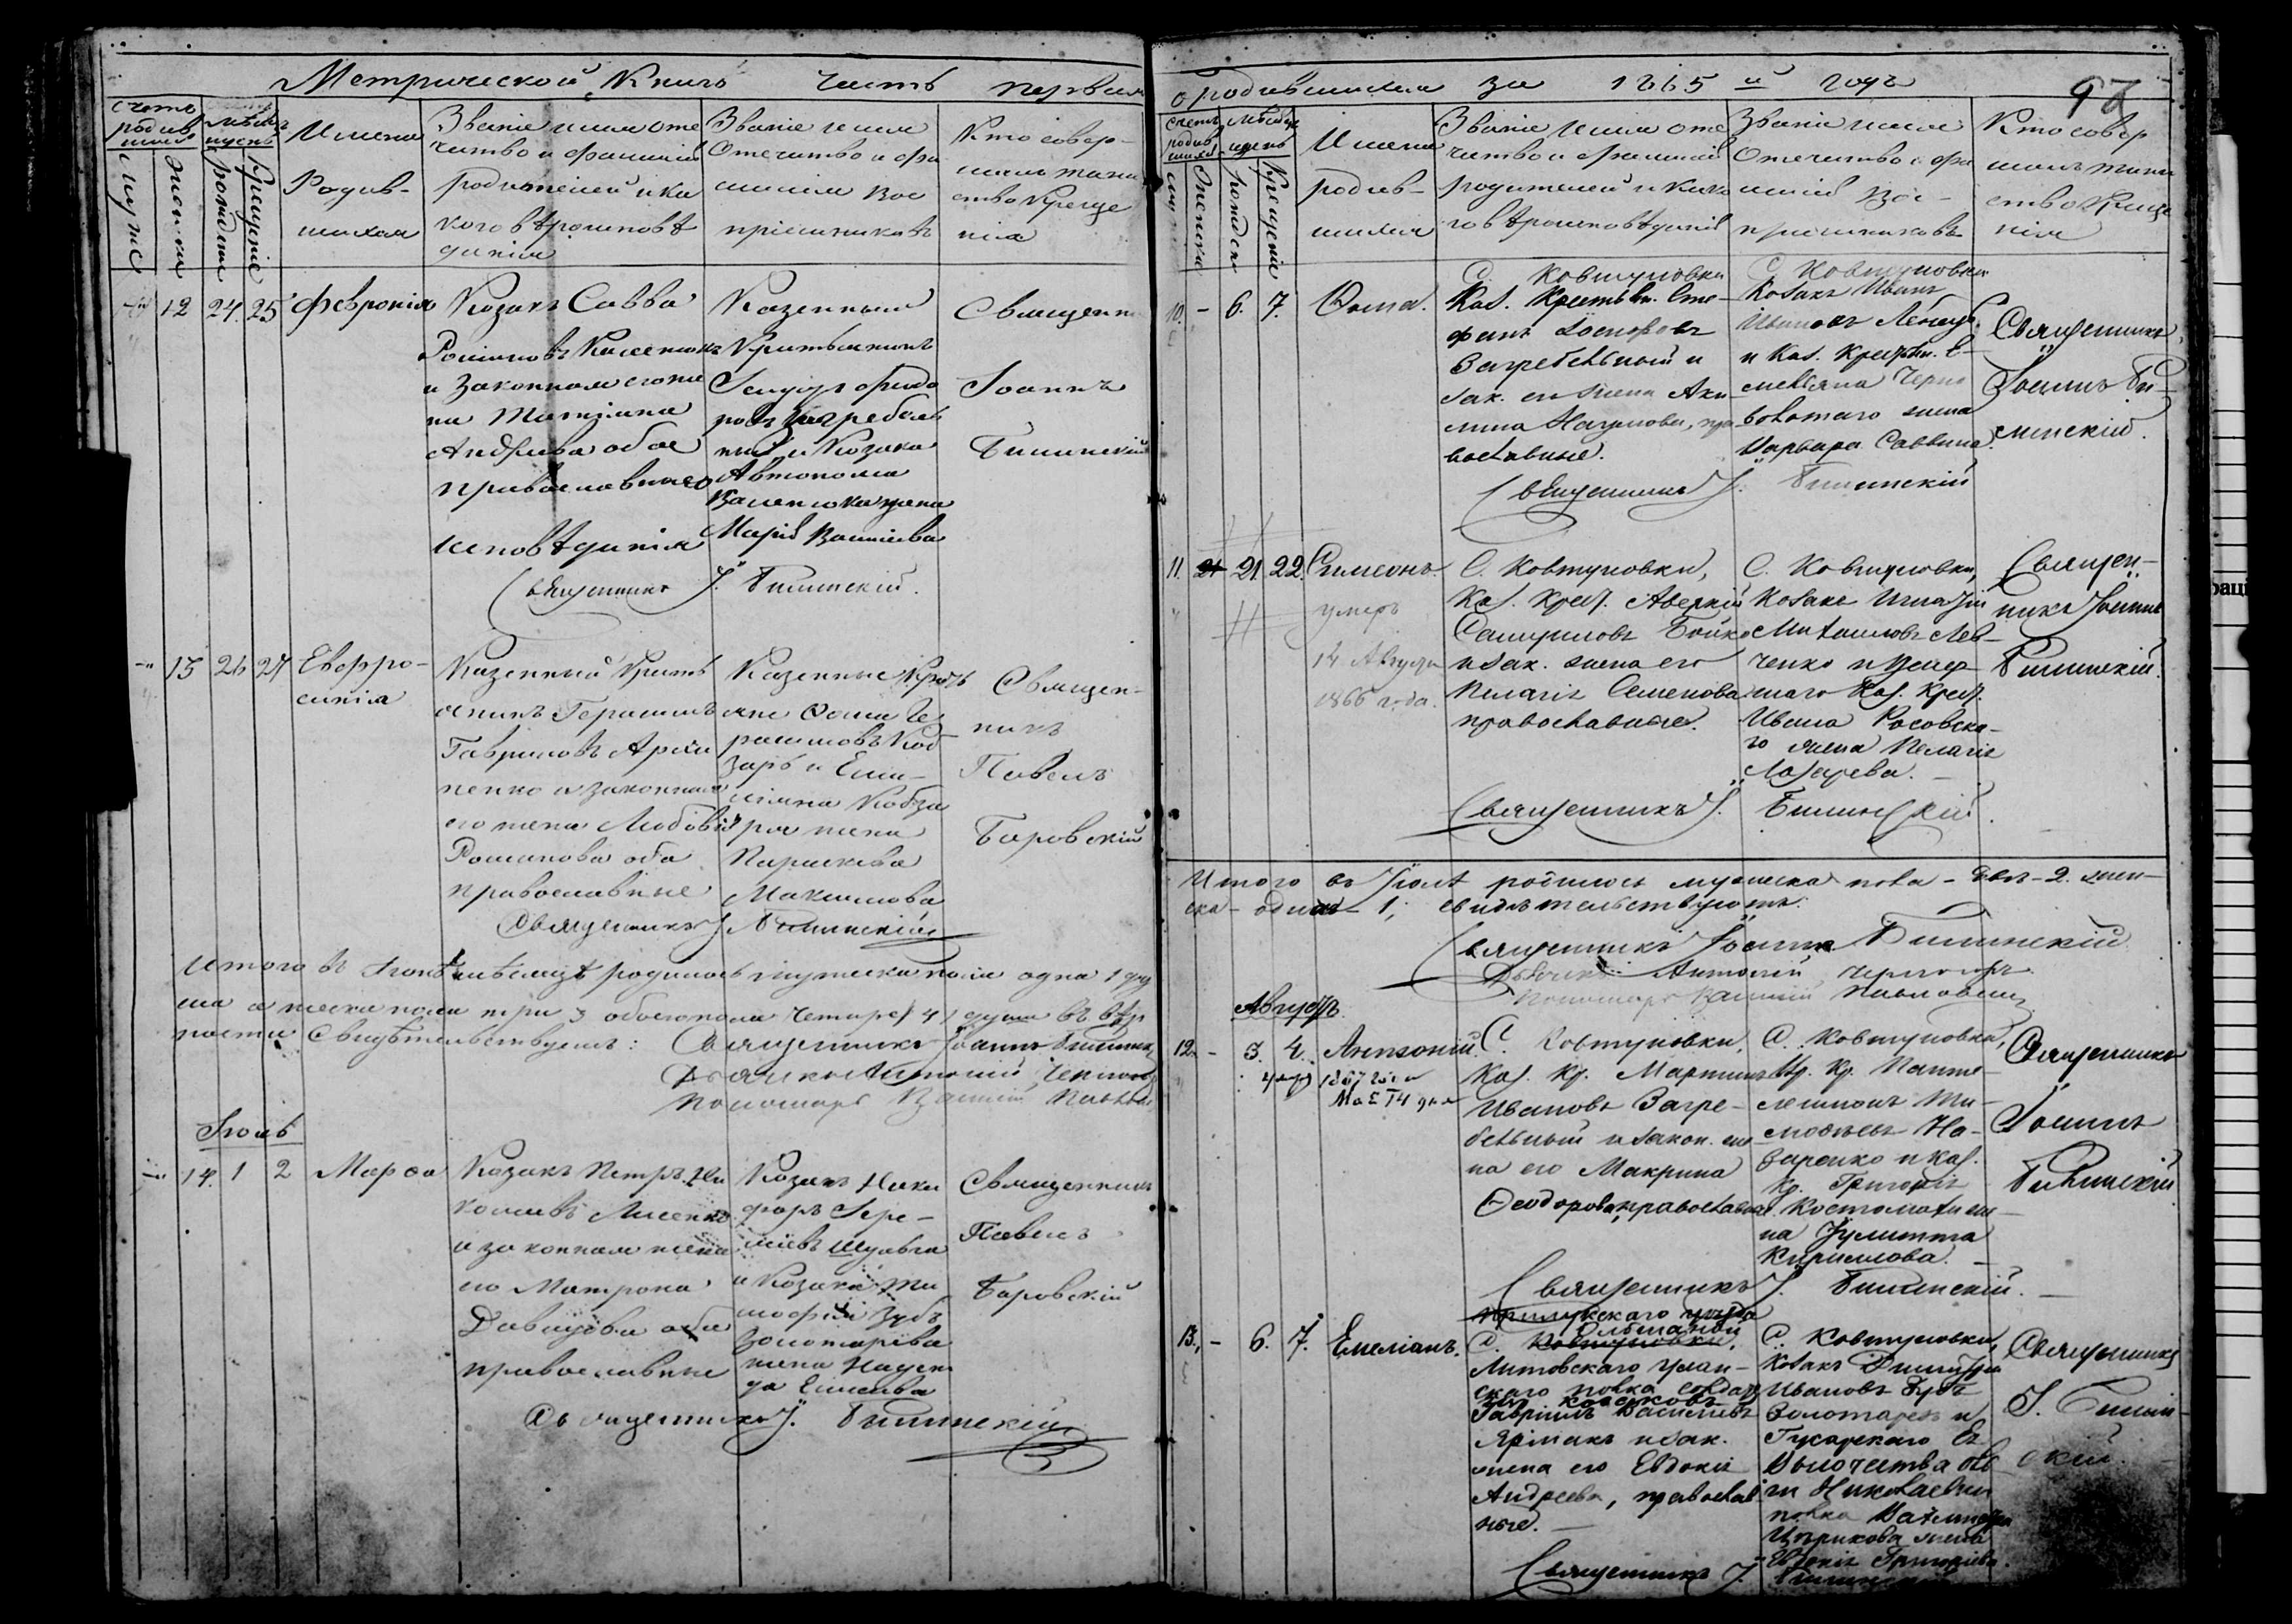 Метрической Книги часть первая
счетъ родив шихся
мѣсяцъ и день
мужес
женска
рожденія
крещенія
Имена
Родив-
шихся
Званіе имя оте
чество и фамилія
родителей и ка
кого вѣроисповѣ
данія
Званіе имя
Отечество и фа
милія вос
пріемниковъ
Кто совер-
шалъ таин
ство Креще
нія
12 24. 25 Февронія
Козакъ Савва
и законная его же
на Татіана
Андреева обое
православнаго
исповѣданія
Казенный
Крестьянинъ
и Козака
Автонома
жена
Марія
Священн
Іоаннъ
Билинскій
Священникъ І. Билинскій.
13 26 27 Евфро-
синія
Казенный Кресть
янинъ Герасимъ
Гавриловъ
и законная
его жена Любовь
Романова оба
православные
Казенные Кресть
яне Ѳома Ге
расимовъ Коб
зарь и Еми-
ліяна Кобза
ря жена
Параскева
Максимова
Священ-
никъ
Павелъ
Боровскій
Священникъ І. Билинскій
Итого въ Іюнѣ мѣсяцѣ родилось мужеска пола одна 1 ду
ша а женска пола три 3 обоего пола четыре 4 души въ вѣр
ности Свидѣтельствуемъ: Священникъ Іоаннъ Билинск
Дьячекъ Антоній
Пономарь
Іюль
14. 1 2 Марѳа
Козакъ Петръ Ни
колаевъ Лисенко
и законная жена
его Матрона
Давидова оба
православные
Козакъ Ники
форъ Іере-
міевъ Шульга
и Козака Ти
мофея Зубъ
Золотарева
жена Надеж
да Елисеева
Священникъ
Павелъ
Боровскій
Священникъ І. Билинскій
о родившихся за 1865 й годъ
97
счетъ родив шихся
мѣсяцъ и день
женска
рожден
крещенія
Имена
родив-
шихся
Званіе имя оте
чество и фамилія
родителей и како
го вѣроисповѣданія
Званіе имя
Отечество и фа
милія вос-
пріемниковъ
Кто совер
шалъ таин
ство Креще
нія
10. - 6. 7. Ѳома.
С. Ковтуновки
Каз. Крестьян. Сте-
фанъ
Загребельный и
зак. его жена Аки
лина Наумова, пра
вославные.
С. Ковтуновки
Козакъ Иванъ
Ивановъ
и Каз. Крестьян. Е-
меліана Черно
волотаго жена
Варвара Саввина.
Священникъ
Іоаннъ Би-
линскій.
Священникъ І. Билинскій
11. 21 21. 22. Симеонъ.
умеръ
14 Августа
1866 года.
С. Ковтуновки,
Каз. Крест. Аверкій
Самуиловъ Бойко
и зак. жена его
Пелагія Семенова
православные.
С. Ковтуновки,
Козакъ Игнатій
Михаиловъ Лев-
ченко и умер-
шаго Каз. Крест.
Ивана Росовска-
го жена Пелагія
Лазарева.
Священ-
никъ Іоаннъ
Билинскій.
Священникъ І. Билинскій.
Итого въ Іюлѣ родилось мужеска пола - два - 2. жен-
ска - одна - 1; свидѣтельствуютъ:
Священникъ Іоаннъ Билинскій
Дьячекъ Антоній
Пономарь Павловскій
Августъ.
12. - 3. 4. Антоній.
умеръ 1867 года
Маія 14 дня
С. Ковтуновки,
Каз. Кр. Мартинъ
Ивановъ Загре-
бельный и закон. же
на его Макрина
Ѳеодорова, православные
С. Ковтуновки,
Кр. Панте-
леимонъ Ти-
моѳеевъ На-
заренко и Каз.
Кр. Григорія
Костомахи же-
на Іулитта
Кириллова.
Священникъ
Іоаннъ
Билинскій
Священникъ І. Билинскій.
13. - 6. 7. Емеліанъ.
Прилукскаго уѣзда
С. Ковтуновки,
Литовскаго улан-
скаго полка солдатъ
изъ козаковъ
Гавріилъ Василіевъ
Ярмакъ и зак.
жена его Евдокія
Андреева, православ
ные.
С. Ковтуновки,
Козакъ Димитрій
Ивановъ Зубъ
Золотарев и
Гусарскаго Ея
Высочества Оль
ги Николаевны
полка
Цѣрикова жена
Евдокія Григоріева.
Священникъ
І. Билин-
скій.
Священникъ І. Билинскій